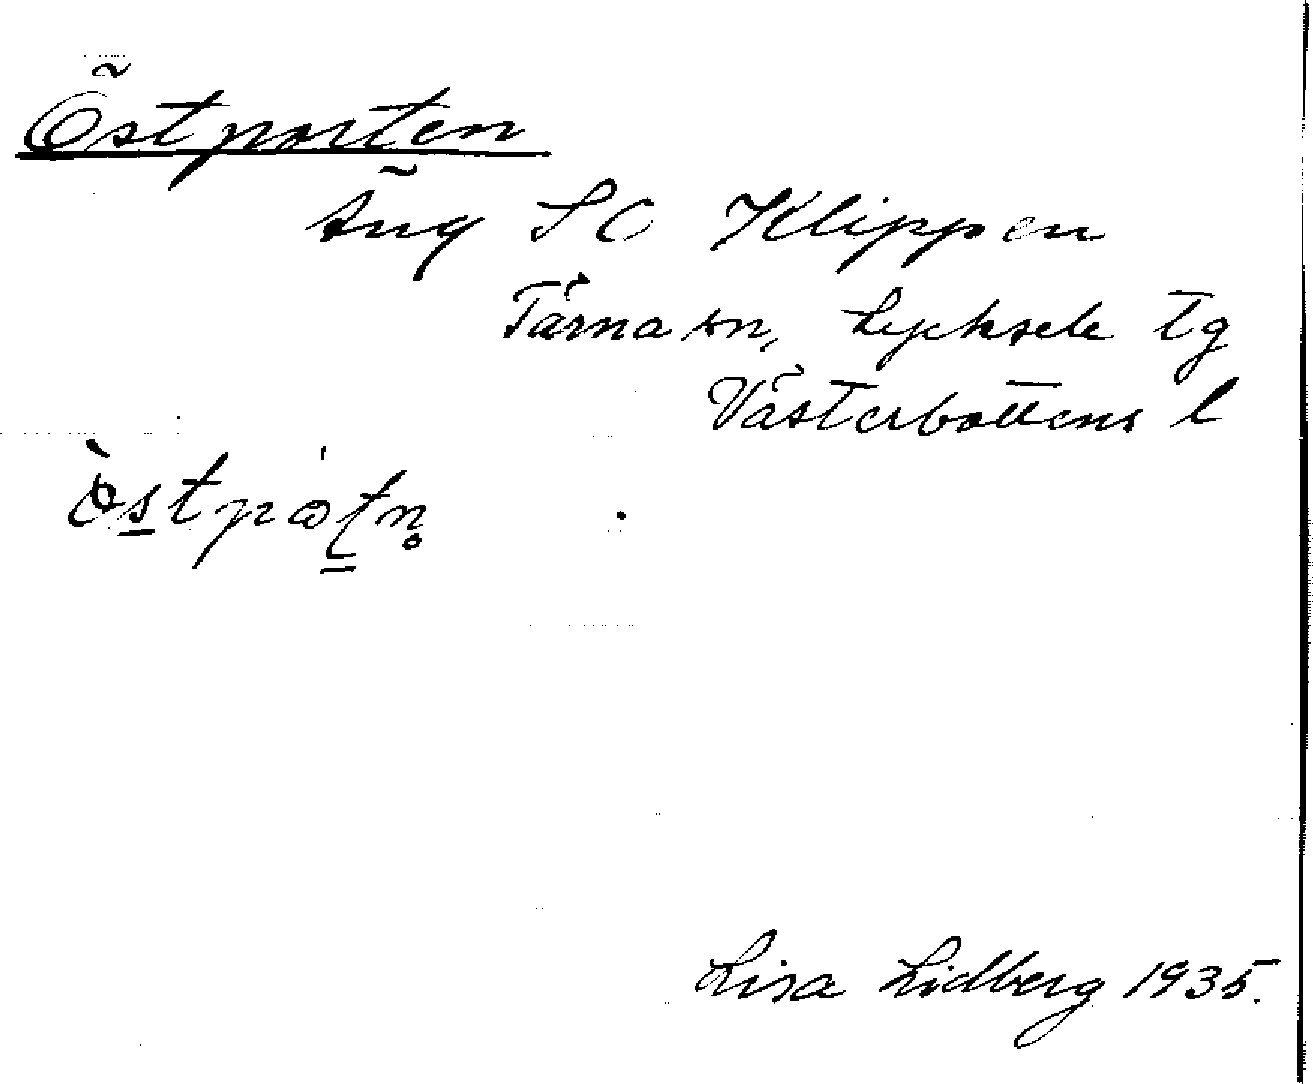 Östporten
Äng SO Klippen
Tärna sn, Lycksele tg
Västerbottens l
Lisa Lidberg 1935.